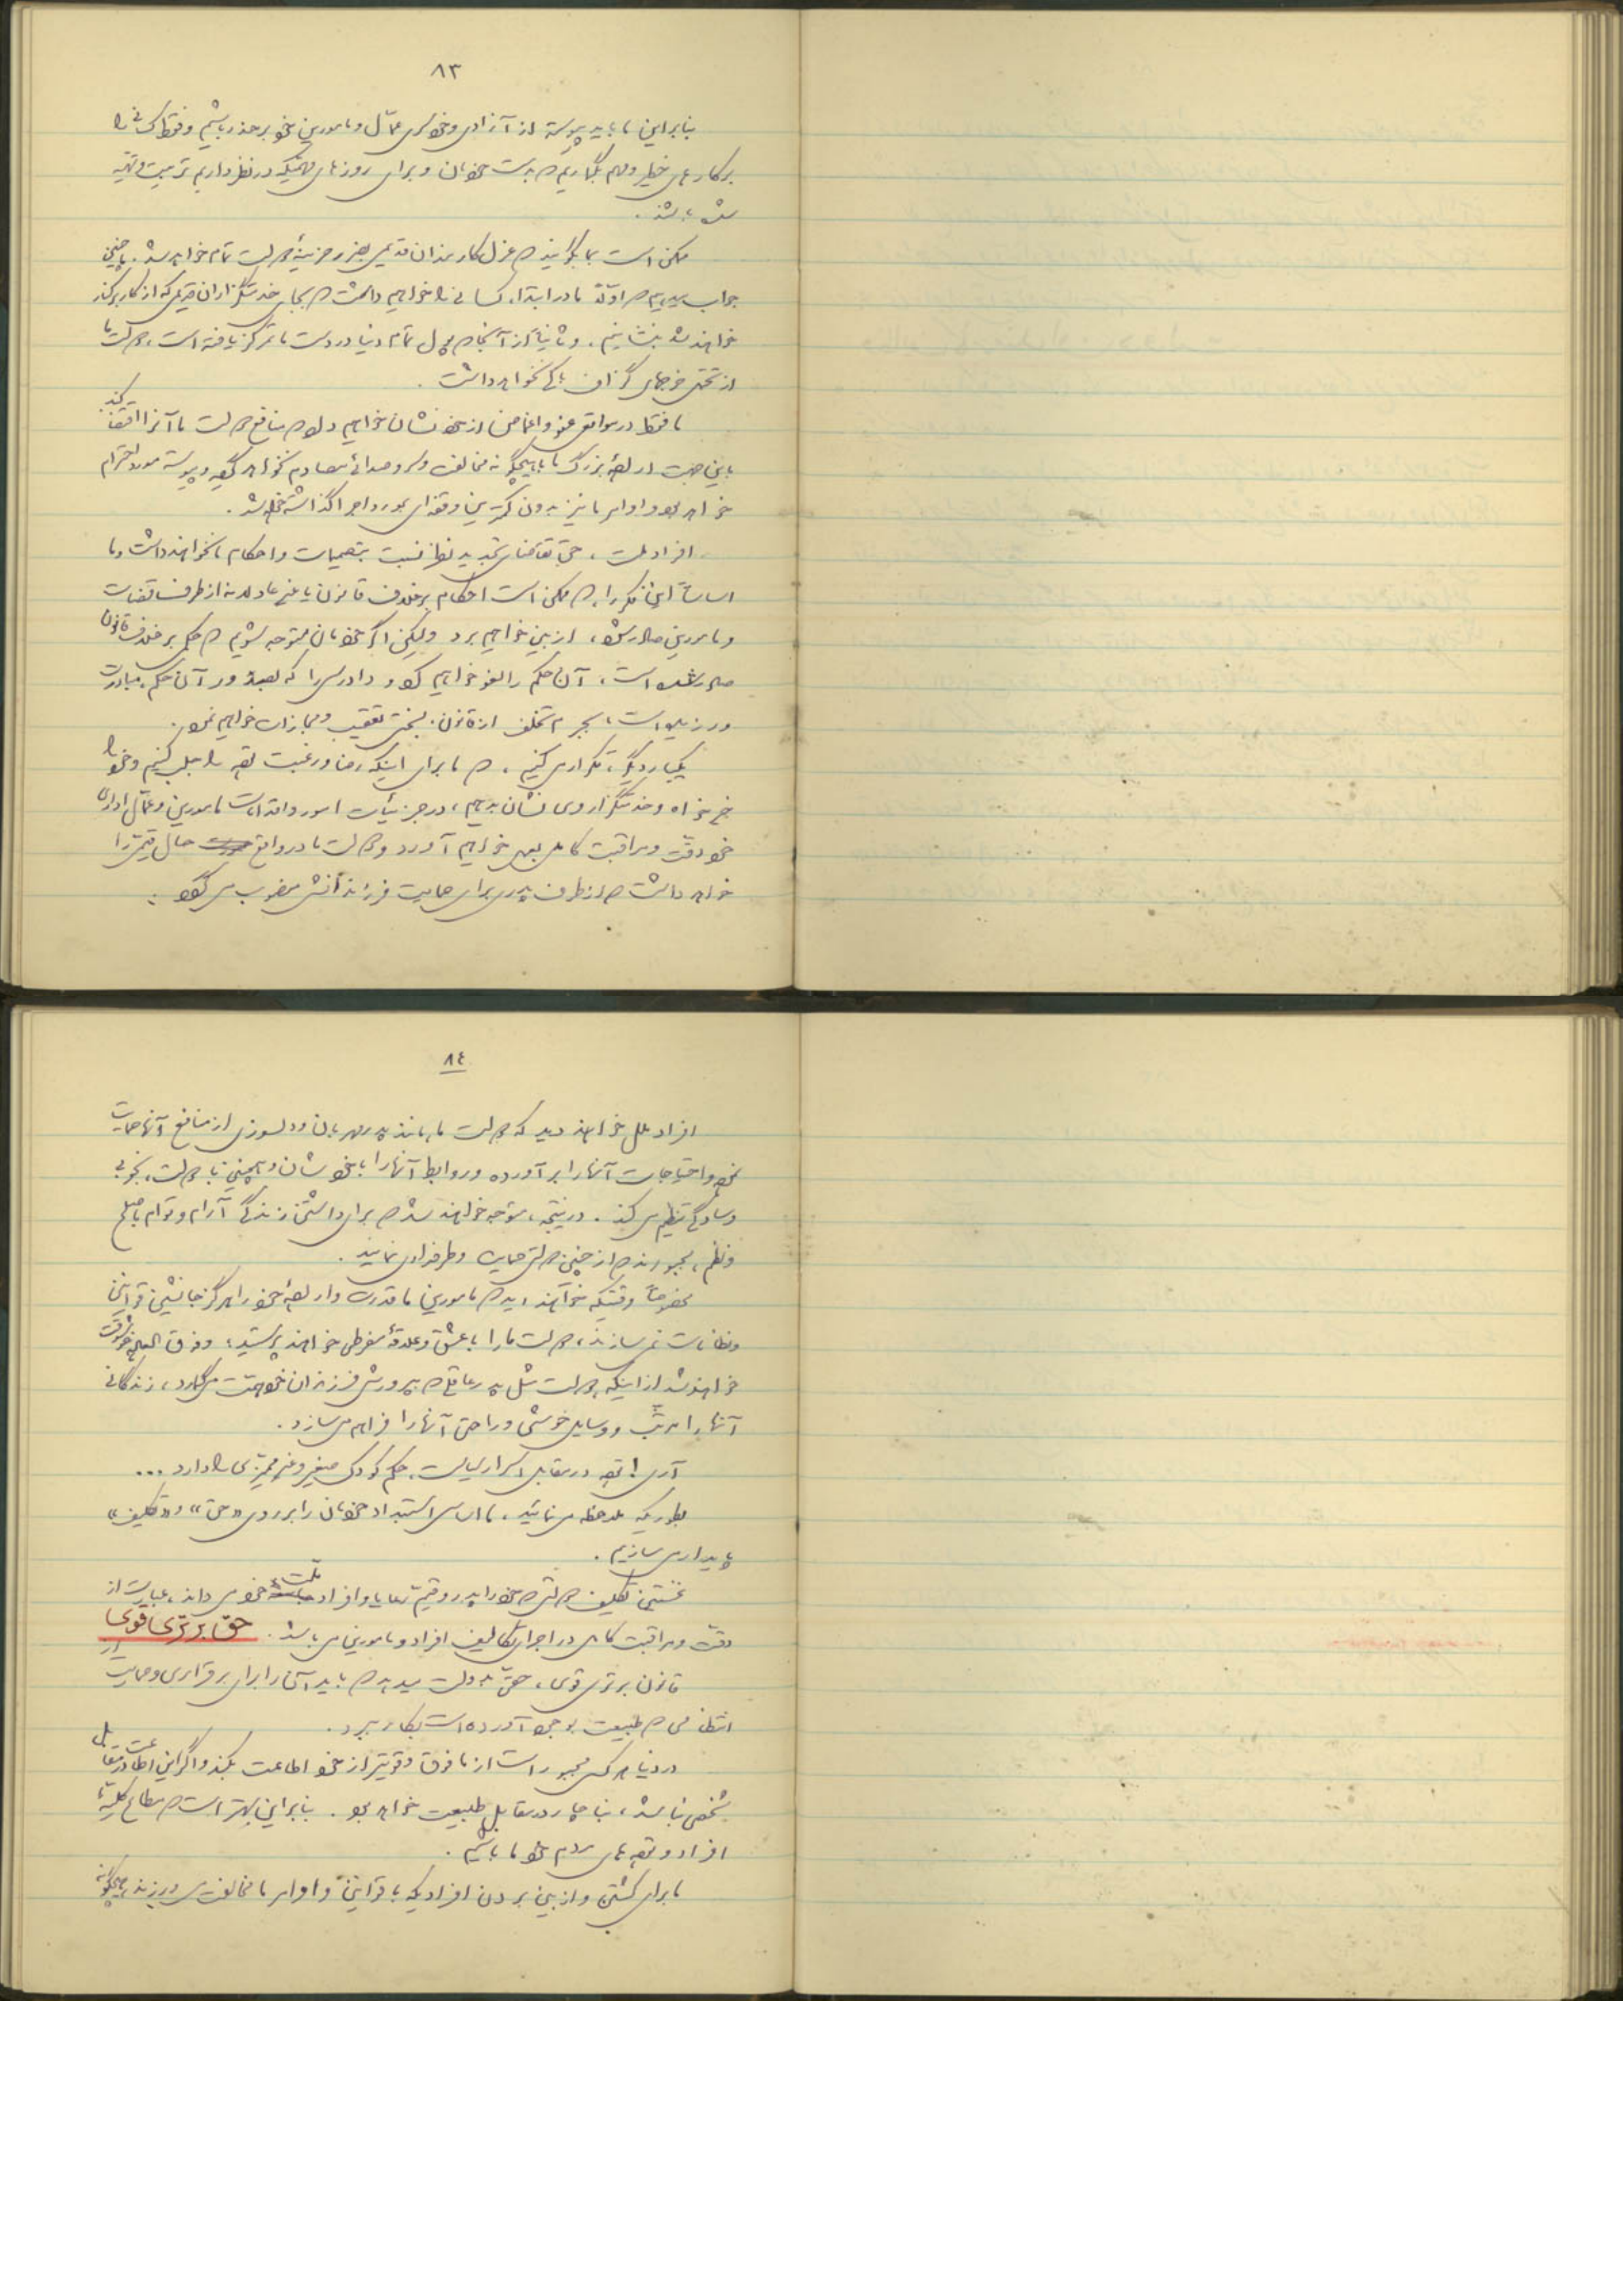 ۸۳
بنابراین ما باید پیوسته از آزادی و خودسری عمّال و مامورین خود برحذر باشیم و فقط کسانی را
برکارهای خطیر و مهم بگماریم که بدست خودمان و برای روزهای مهمّیکه در نظر داریم تربیت و تهیّه
شده باشند.
ممکن است بما بگوئید که عزل کارمندان قدیمی بضرر خزینهٔ دولت تمام خواهد شد. ما چنین
جواب میدهیم که اوّلاً ما در ابتدا، کسانی را خواهیم داشت که بجای خدمتگزاران قدیمی که از کار برکنار
خواهند شد بنشانیم. و ثانیاً از آنجا که پول تمام دنیا در دست ما تمرکز یافته است، دولت ما
از تحمّل خرجهای گزاف باکی نخواهد داشت.
ما فقط در مواقعی عفو و اغماض از خود نشان خواهیم داد که منافع دولت ما آنرا اقتضا کند.
باین جهت اراده بزرگ ما با هیچگونه مخالفت و سر و صدائی مصادم نخواهد گردید و پیوسته مورد احترام
خواهد بود و اوامر ما نیز بدون کمترین وقفه‌ای بمورد اجرا گذاشته خواهد شد.
افراد ملت، حقّ تقاضای تجدید نظر نسبت بتصمیمات و احکام ما نخواهند داشت و ما
اساساً این فکر را، که ممکن است احکام برخلاف قانون یا غیر عادلانه از طرف قضات
و مامورین صادر شود، از بین خواهیم برد ولیکن اگر خودمان متوجه شویم که حکمی برخلاف قانون
صادر شده است، آن حکم را لغو خواهیم کرد و دادرسی را که بصدور آن حکم، مبادرت
ورزیده است، بجرم تخلف از قانون، بسختی تعقیب و مجازات خواهیم نمود.
یکبار دیگر، تکرار می‌کنیم، که ما برای اینکه رضا و رغبت توده را جلب کنیم و خود را
خیرخواه و خدمتگزار وی نشان بدهیم، در جزئیات امور و اقدامات مامورین و عمّال اداری
خود دقّت و مراقبت کامل بعمل خواهیم آورد و دولت ما در واقع حال قیّمی را
خواهد داشت که از طرف پدری برای حمایت فرزندانش منصوب می‌گردد.
۸٤
افراد ملل خواهند دید که دولت ما، مانند پدر مهربان و دلسوزی از منافع آنها حمایت
نموده و احتیاجات آنها را برآورده و روابط آنها را با خودشان و همچنین با دولت، بخوبی
و سادگی تنظیم می‌کند. در نتیجه، متوجه خواهند شد که برای داشتن زندگی آرام و توام با صلح
و نظم، مجبورند که از چنین دولتی حمایت و طرفداری نمایند.
مخصوصاً وقتیکه خواهند دید که مامورین ما قدرت و اراده خود را هرگز جانشین قوانین
و نظامات نمی‌سازند، دولت ما را با عشق و علاقهٔ مفرطی خواهند پرستید، و فوق العاده خوشوقت
خواهند شد از اینکه دولت مثل پدر عاقلی که به پرورش فرزندان خود همّت می‌گمارد، زندگانی
آنها را مرتّب و وسایل خوشی و راحتی آنها را فراهم می‌سازد.
آری! توده در مقابل اسرار سیاست، حکم کودک صغیر و غیر ممیّزی را دارد ...
بطوریکه ملاحظه می‌نمائید، ما اساس استبداد خودمان را بر روی «حق» و «تکلیف»
پایدار می‌سازیم.
نخستین تکلیف دولتی که خود را پدر و قیّم رعایا و افراد ملّت خود می‌داند، عبارت از
دقّت و مراقبت کامل در اجرای تکالیف افراد و مامورین می‌باشد. حق برتری قوی
قانون برتری قوی، حقّی بدولت میدهد که باید آن را برای برقراری و حمایت از
انتظامی که طبیعت بوجود آورده است بکار ببرد.
در دنیا هر کس مجبور است از مافوق و قویتر از خود اطاعت بکند و اگر این اطاعت در مقابل
شخصی نباشد، بناچار در مقابل طبیعت خواهد بود. بنابراین بهتر است که مطاع کلیّهٔ
افراد و توده‌های مردم خود ما باشیم.
ما برای کشتن و از بین بردن افرادیکه با قوانین و اوامر ما مخالفت می‌ورزند، هیچگونه